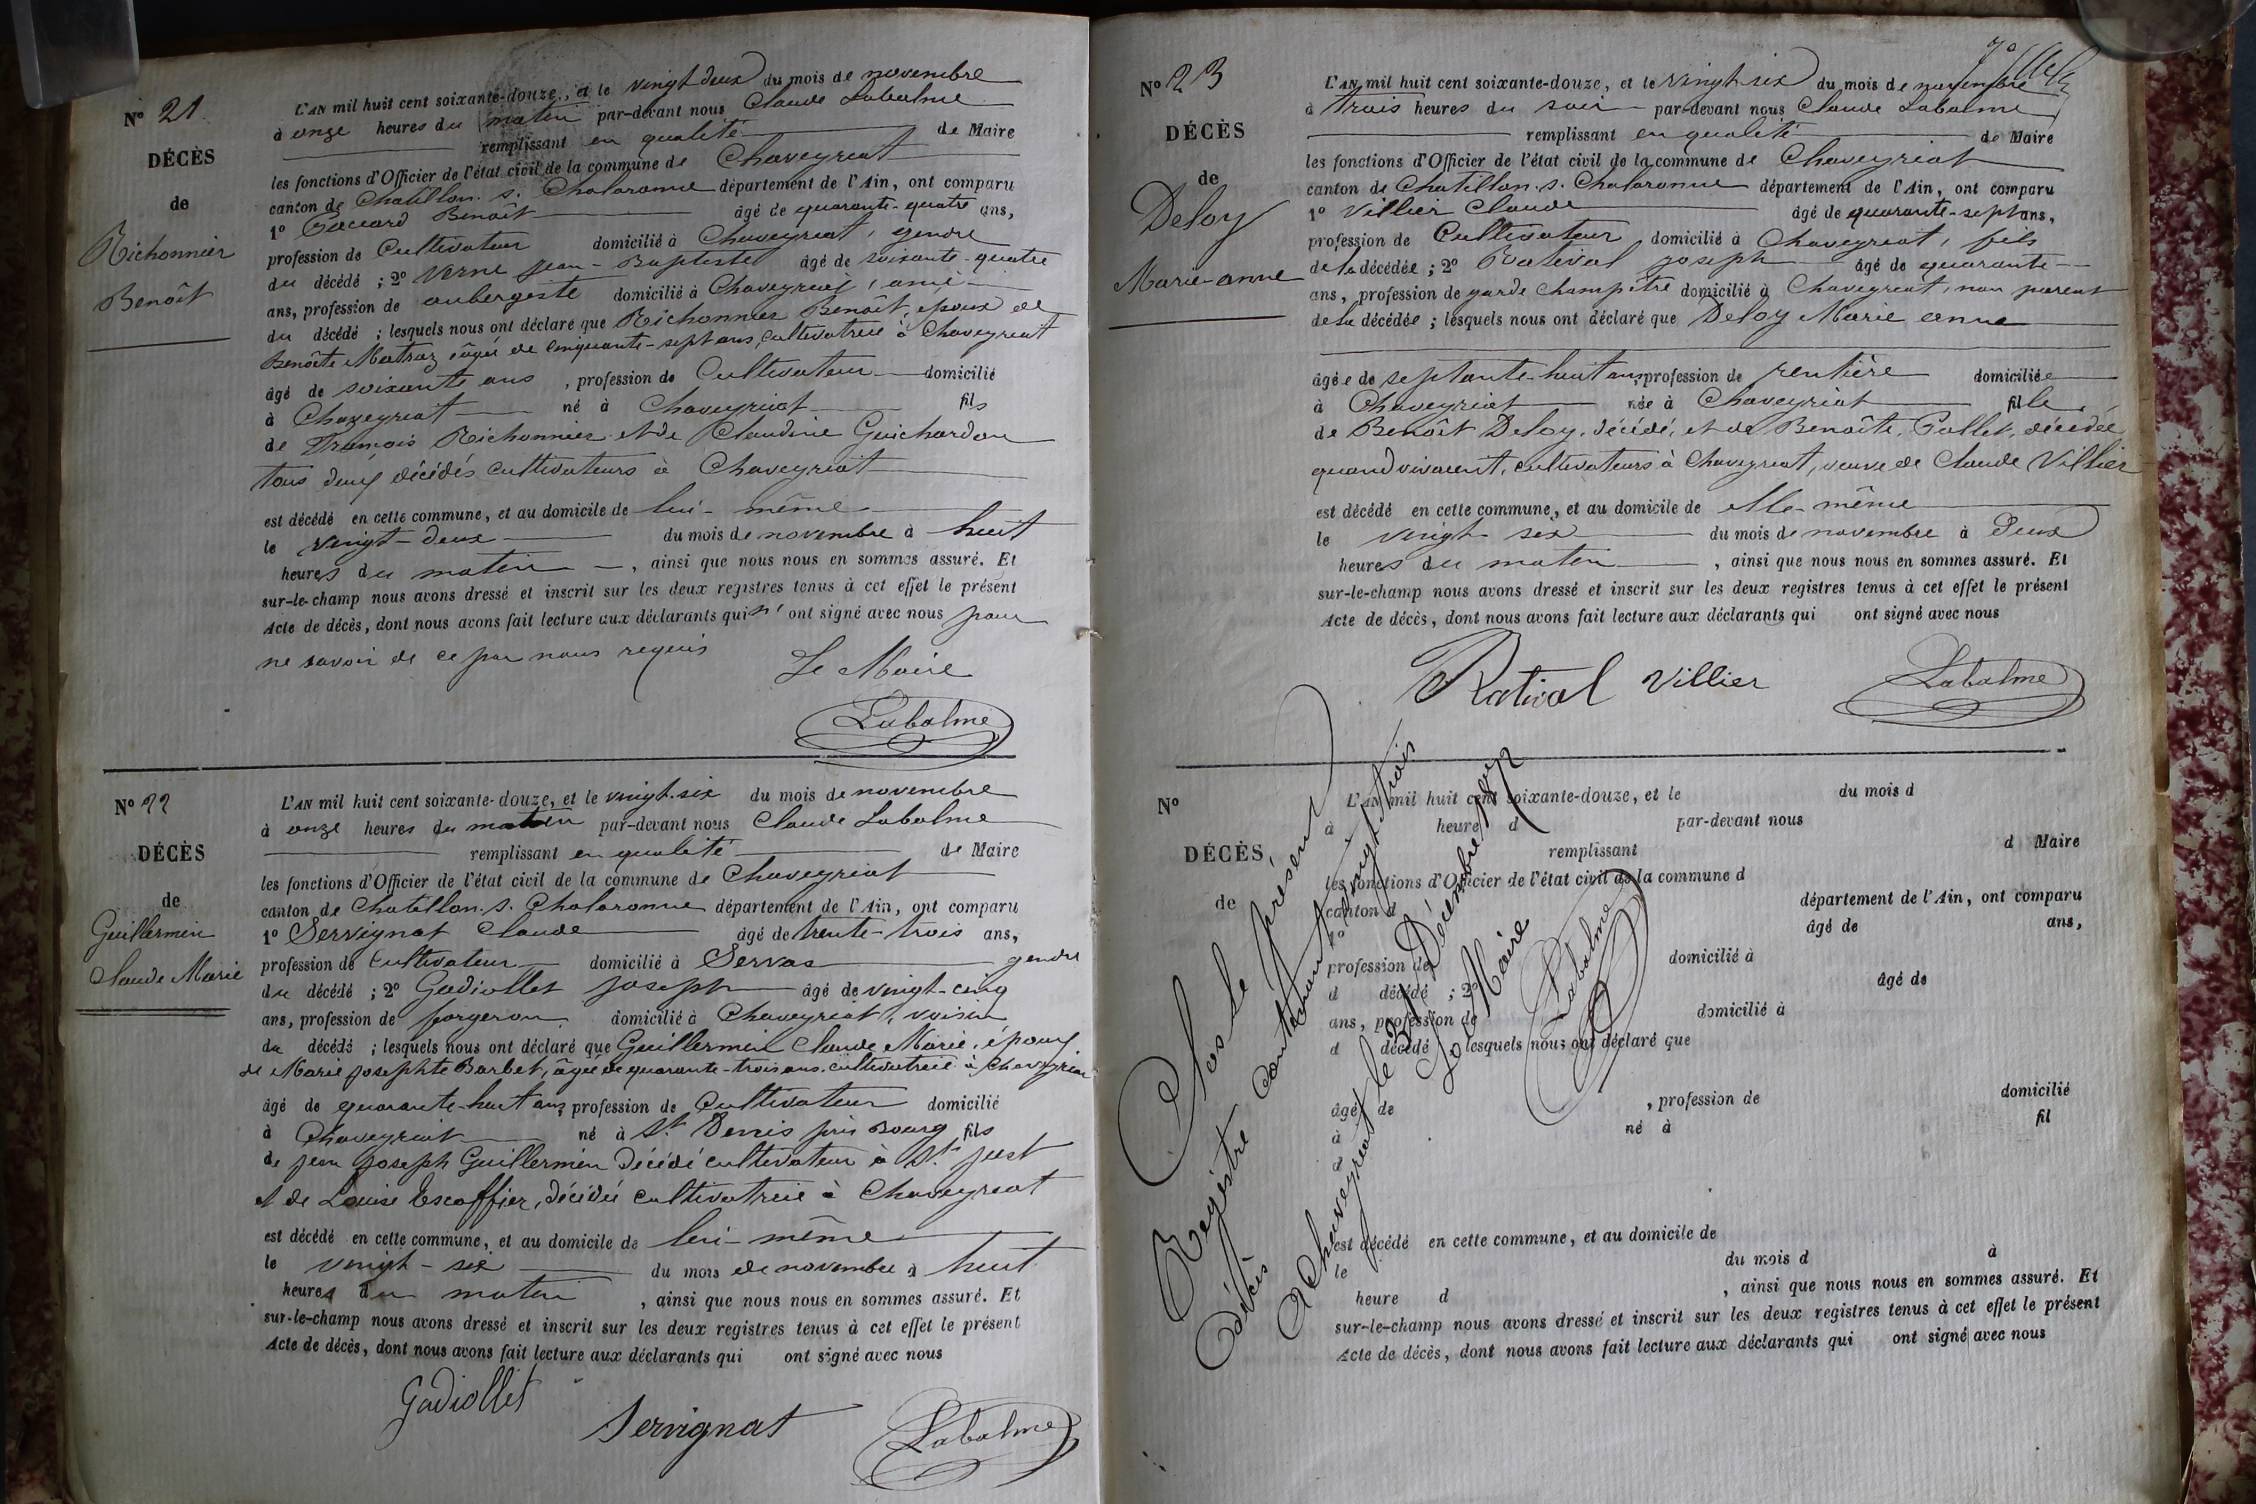 N° 21
DÉCÈS
de
Richonnier
Benoît
L'AN mil huit cent soixante-douze, et le vingt deux du mois de novembre
à onze heures du matin par-devant nous Claude Labalme
remplissant en qualité de Maire
les fonctions d'Officier de l'état civil de la commune de Chaveyriat
canton de Chatillon. s. Chalaronne département de l'Ain, ont comparu
1° Benoît âgé de quarante-quatre ans,
profession de Cultivateur domicilié à Chaveyriat, gendre
du décédé ; 2° Verne Jean-Baptiste âgé de soixante-quatre
ans, profession de aubergiste domicilié à Chaveyriat, ami
du décédé ; lesquels nous ont déclaré que Richonnier Benoît, époux de
Benoîte Matray âgée de cinquante-sept ans, cultivatrice à Chaveyriat
âgé de soixante ans, profession de Cultivateur domicilié
à Chaveyriat né à Chaveyriat fils
de François Richonnier et de Claudine Guichardon
tous deux décédés cultivateurs à Chaveyriat
est décédé en cette commune, et au domicile de lui-même
le vingt-deux du mois de novembre à huit
heures du matin, ainsi que nous nous en sommes assuré. Et
sur-le-champ nous avons dressé et inscrit sur les deux registres tenus à cet effet le présent
Acte de décès, dont nous avons fait lecture aux déclarants qui n'ont signé avec nous pour
ne savoir de ce par nous requis
Le Maire
Labalme
N° 22
DÉCÈS
de
Guillermin
Claude Marie
L'AN mil huit cent soixante-douze, et le vingt-six du mois de novembre
à onze heures du matin par-devant nous Claude Labalme
remplissant en qualité de Maire
les fonctions d'Officier de l'état civil de la commune de Chaveyriat
canton de Chatillon. s. Chalaronne département de l'Ain, ont comparu
1° Servignat Claude âgé de trente-trois ans,
profession de cultivateur domicilié à Servas gendre
du décédé ; 2° Gadiollet Joseph âgé de vingt-cinq
ans, profession de forgeron domicilié à Chaveyriat, voisin
du décédé ; lesquels nous ont déclaré que Guillermin Claude Marie, époux
de Marie Josephte Barbet, âgée de quarante-trois ans, cultivatrice à Chaveyriat
âgé de quarante-huit ans, profession de Cultivateur domicilié
à Chaveyriat né à St Denis près Bourg fils
de Jean Joseph Guillermin décédé cultivateur à St Just
et de Louise Escoffier, décédée cultivatrice à Chaveyriat
est décédé en cette commune, et au domicile de lui-même
le vingt-six du mois de novembre à huit
heures du matin, ainsi que nous nous en sommes assuré. Et
sur-le-champ nous avons dressé et inscrit sur les deux registres tenus à cet effet le présent
Acte de décès, dont nous avons fait lecture aux déclarants qui ont signé avec nous
Gadiollet
Servignat
Labalme
N° 23
DÉCÈS
de
Deloy
Marie-anne
L'AN mil huit cent soixante-douze, et le vingt-six du mois de novembre
à trois heures du soir par-devant nous Claude Labalme
remplissant en qualité de Maire
les fonctions d'Officier de l'état civil de la commune de Chaveyriat
canton de Chatillon. s. Chalaronne département de l'Ain, ont comparu
1° Villier Claude âgé de quarante-sept ans,
profession de Cultivateur domicilié à Chaveyriat, fils
de la décédée ; 2° Ratival Joseph âgé de quarante
ans, profession de garde champêtre domicilié à Chaveyriat, non parent
de la décédée ; lesquels nous ont déclaré que Deloy Marie anne
âgée de septante-huit ans, profession de rentière domiciliée
à Chaveyriat née à Chaveyriat fille
de Benoît Deloy, décédé, et de Benoîte Gallet, décédée
quand vivaient, cultivateurs à Chaveyriat, veuve de Claude Villier
est décédé en cette commune, et au domicile de elle-même
le vingt six du mois de novembre à deux
heures du matin, ainsi que nous nous en sommes assuré. Et
sur-le-champ nous avons dressé et inscrit sur les deux registres tenus à cet effet le présent
Acte de décès, dont nous avons fait lecture aux déclarants qui ont signé avec nous
Rativol Villier
Labalme
N°
DÉCÈS
de
L'AN mil huit cent soixante-douze, et le du mois d
à heure d par-devant nous
remplissant d Maire
les fonctions d'Officier de l'état civil de la commune d
canton d département de l'Ain, ont comparu
1° âgé de ans,
profession de domicilié à
d décédé ; 2° âgé de
ans, profession de domicilié à
d décédé lesquels nous ont déclaré que
âgé de , profession de domicilié
à né à fil
d
est décédé en cette commune, et au domicile de
le du mois d à
heure d , ainsi que nous nous en sommes assuré. Et
sur-le-champ nous avons dressé et inscrit sur les deux registres tenus à cet effet le présent
Acte de décès, dont nous avons fait lecture aux déclarants qui ont signé avec nous
Clos le présent
Registre contenant vingt-trois
décès
A Chaveyriat le 31 Décembre
Le Maire
Labalme